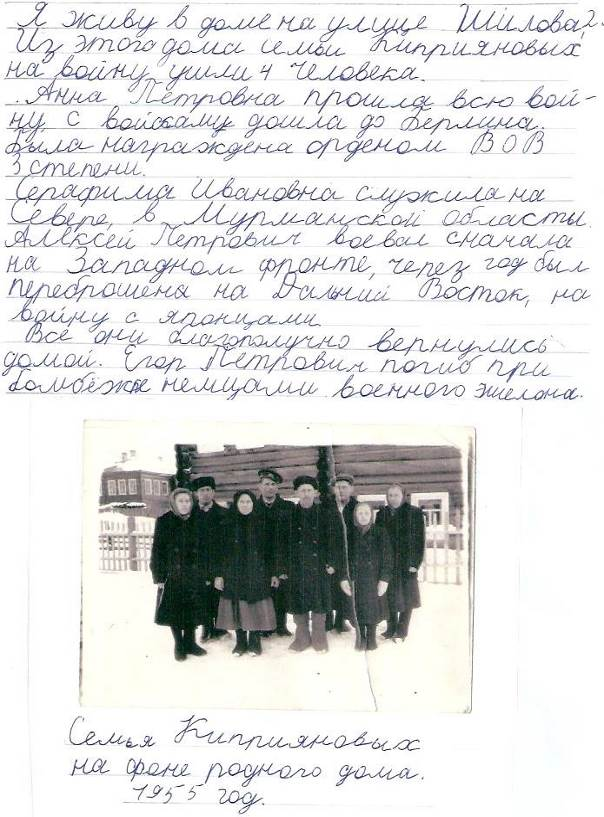 Я живу в доме на улице Шилова, 2.
Из этого дома семьи Киприяновых
на войну ушли 4 человека.
Анна Петровна прошла всю вой-
ну, с войскаму дошла до Берлина.
Была награждена орденом ВОВ
3 степени.
Серафима Ивановна служила на
Севере, в Мурманской области.
Алексей Петрович воевал сначала
на Западном фронте, через год был
переброшеня на Дальний Восток, на
войну с японцами.
Все они благополучно вернулись
домой. Егор Петрович погиб при
бомбёжке немцами военного эшелона.
Семья Киприяновых
на фоне родного дома.
1955 год.